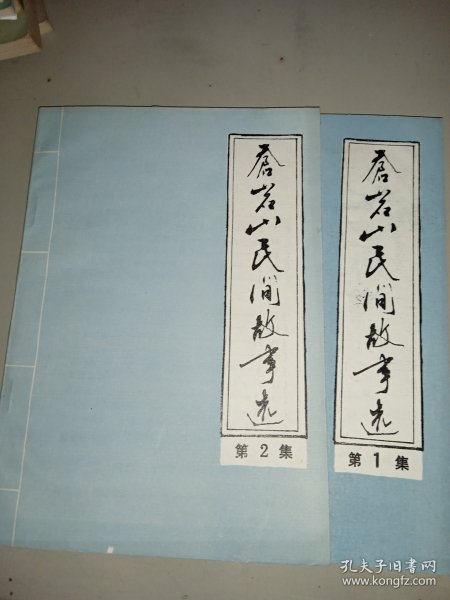 蒼岩山民间故事选
第2集
蒼岩山民间故事选
第1集
孔夫子旧书网
www.kongfz.com